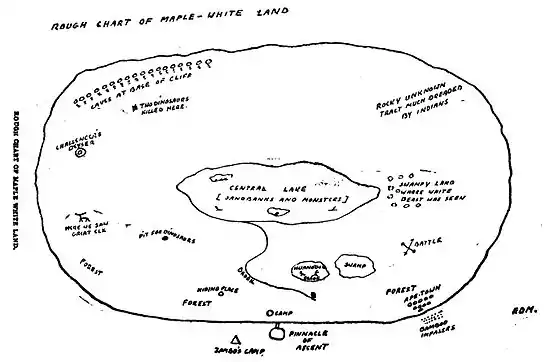 ROUGH CHART OF MAPLE-WHITE LAND
CAVES AT BASE OF CLIFF
TWO DINOSAURS
KILLED HERE.
ROCKY UNKNOWN
TRACT MUCH DREADED
BY INDIANS
CHALLENGER'S
GEYSER
ROUGH CHART OF MAPLE WHITE LAND.
CENTRAL LAKE
[SANDBANKS AND MONSTERS]
SWAMPY LAND
WHERE WHITE
BEAST WAS SEEN
HERE WE SAW
GREAT ELK
PIT FOR DINOSAURS
BATTLE
FOREST
BROOK
IGUANODON
SWAMP
HIDING PLACE
FOREST
FOREST
APE-TOWN
CAMP
BAMBOO
IMPALERS
EDM.
ZAMBO'S CAMP
PINNACLE
OF
ASCENT